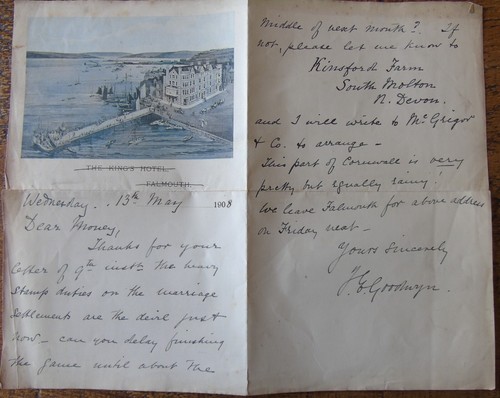 THE KING'S HOTEL
FALMOUTH.
Wednesday. 13th May 1908
Dear Money,
Thanks for your
letter of 9th inst. The heavy
stamp duties on the marriage
settlements are the devil just
now - can you delay finishing
the game until about the
middle of next month? If
not, please let me know to
Kinsford Farm
South Molton
N. Devon.
and I will write to McGrigor
& Co. to arrange -
This part of Cornwall is very
pretty but equally rainy!
We leave Falmouth for above address
on Friday next -
Yours sincerely
Goodwyn.